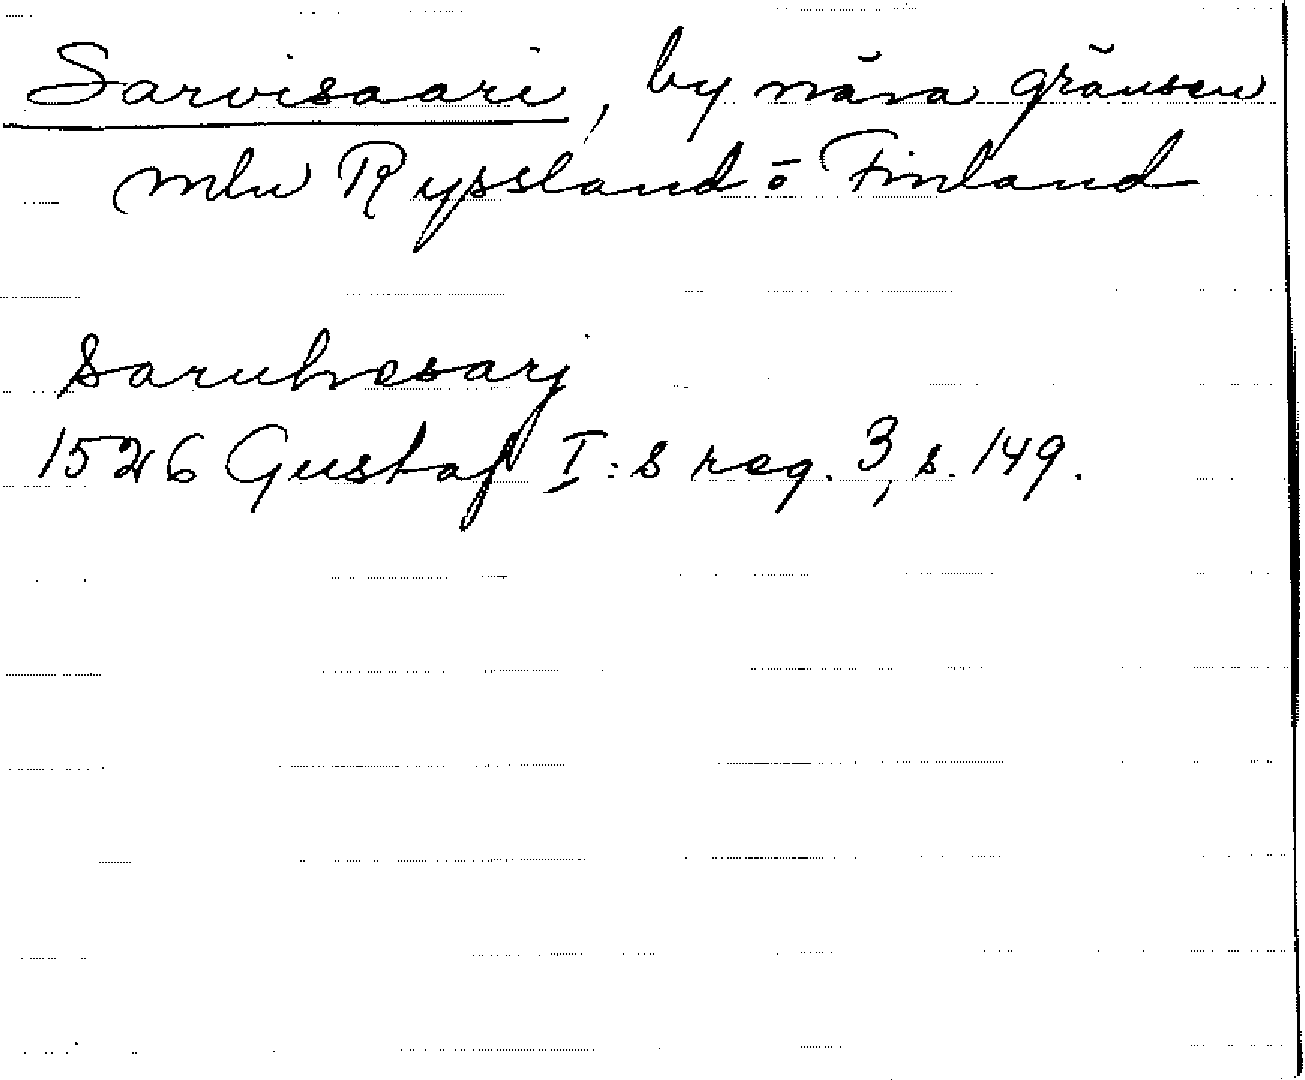 Sarvisaari, by nära gränsen
mln Ryssland o Finland
Saruhvesarj
1526 Gustaf I:s reg. 3, s. 149.